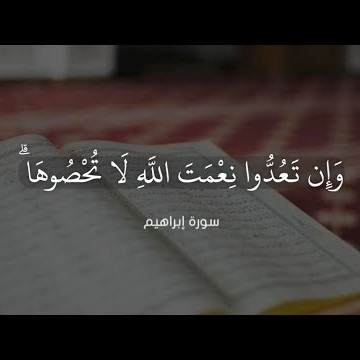 وَإِن تَعُدُّوا نِعْمَتَ اللَّهِ لَا تُحْصُوهَا ۗ
سورة إبراهيم